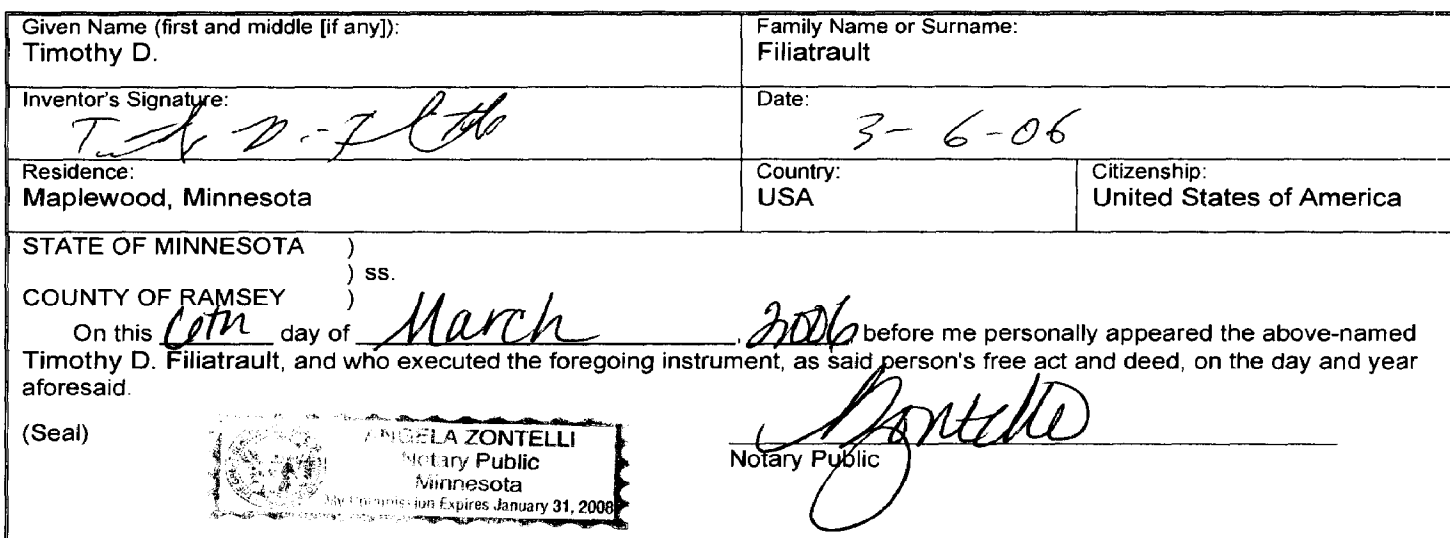 Given Name (first and middle [if any]): Family Name or Surname:
Timothy D. Filiatrault
Inventor's Signature: Date:
3-6-06
Residence: Country: Citizenship:
Maplewood, Minnesota USA United States of America
STATE OF MINNESOTA )
) ss.
COUNTY OF RAMSEY )
On this 6th day of March, 2006 before me personally appeared the above-named
Timothy D. Filiatrault, and who executed the foregoing instrument, as said person's free act and deed, on the day and year
aforesaid.
(Seal)
ANGELA ZONTELLI
Notary Public
Minnesota
My Commission Expires January 31, 2008
Zontelli
Notary Public